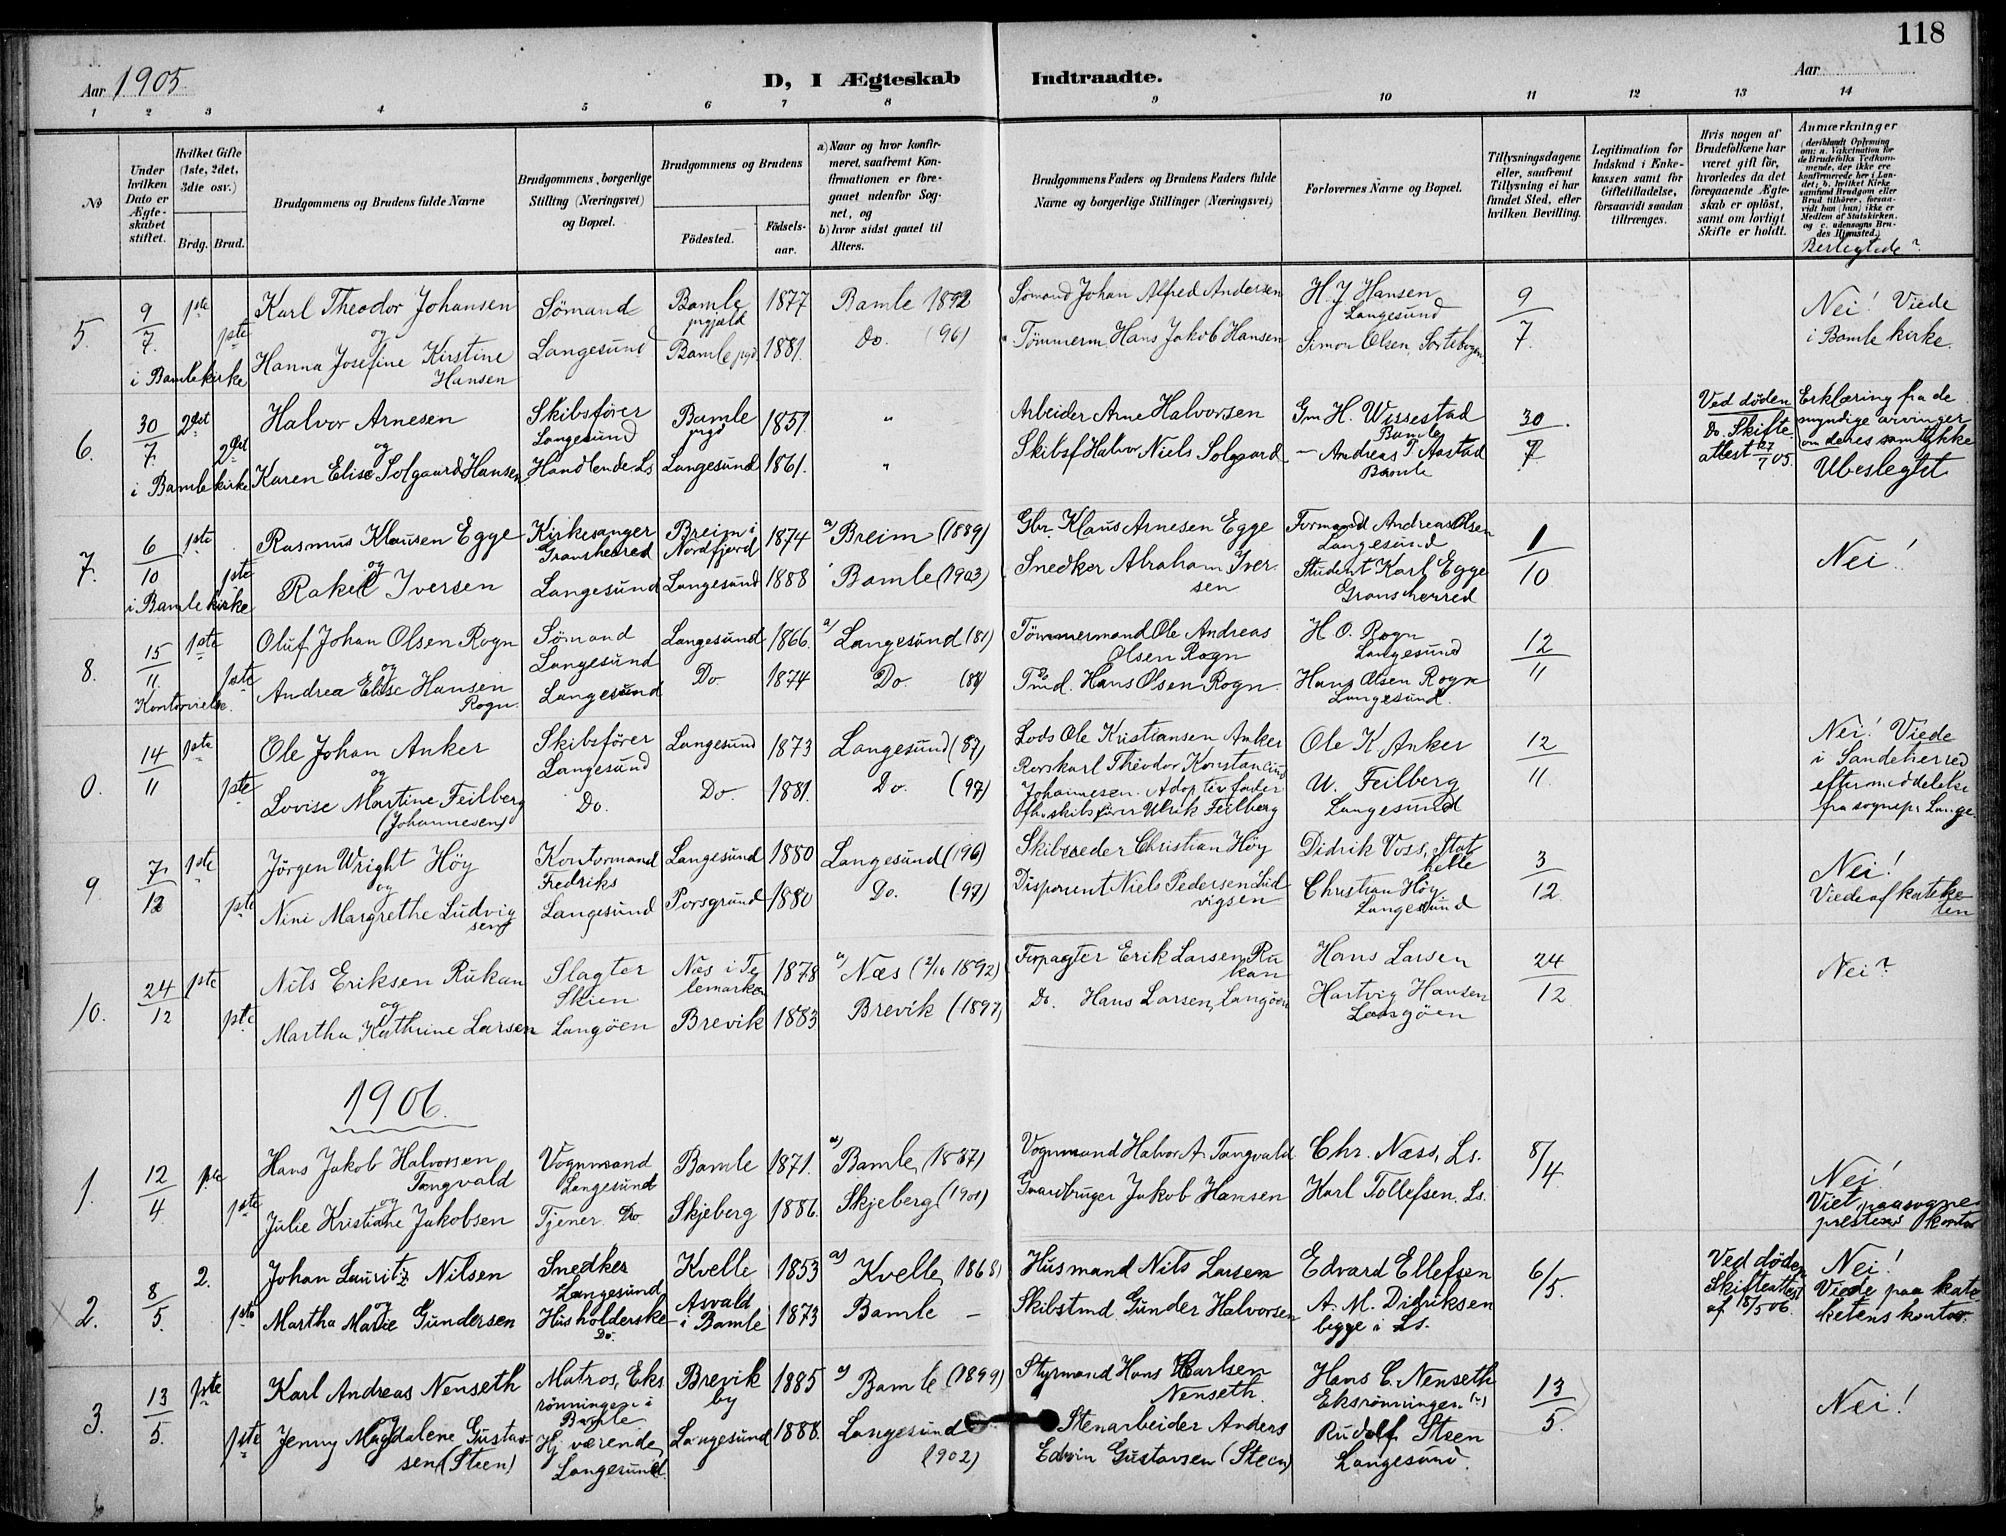 118
Aar 1905.
D, I Ægteskab Indtraadte.
Aar
1 2 3 4 5 6 7 8 9 10 11 12 13 14
No
Under hvilken Dato er Ægteskabet stiftet.
Hvilket Gifte (1ste, 2det, 3die osv.)
Brdg. Brud.
Brudgommens og Brudens fulde Navne
Brudgommens borgerlige Stilling (Næringsvei) og Bopæl.
Brudgommens og Brudens
Fødested.
Fødsels-aar.
a) Naar og hvor konfirmeret, saafremt Konfirmationen er foregaaet udenfor Sognet, og
b) hvor sidst gaaet til Alters.
Brudgommens Faders og Brudens Faders fulde Navne og borgerlige Stillinger (Næringsvei)
Forlovernes Navne og Bopæl.
Tillysningsdagene eller, saafremt Tillysning ei har fundet Sted, efter hvilken Bevilling.
Legitimation for Indskud i Enkekassen samt for Giftetilladelse, forsaavidt saadan tiltrænges.
Hvis nogen af Brudefolkene har været gift før, hvorledes da det foregaaende Ægteskab er opløst, samt om lovligt Skifte er holdt.
Anmærkninger
(deriblandt Oplysning om: a. Vakcination for de Brudefolks Vedkommende, der ikke ere konfirmerede her i Landet; b. hvilket Kirkesamfund Brudgom eller Brud tilhører, forsaavidt han (hun) ikke er Medlem af Statskirken, og c. udensogns Brudes Hjemsted.)
Beslegtede?
5. 9/7. i Bamle kirke 1ste 1ste
Karl Theodor Johansen
og
Hanna Josefine Kirstine Hansen
Sömand
Langesund
Bamle prgjæld 1877
Bamle pgd 1881.
Bamle 1892
Do. (96)
Sömand Johan Alfred Andersen
Tömmerm Hans Jakob Hansen
H. J. Hansen Langesund
Simon Olsen,
9/7.
Nei! Viede i Bamle kirke.
6. 30/7. i Bamle kirke 2det 2det
Halvor Arnesen
og
Karen Elise Solgaard Hansen
Skibsförer Langesund
Handlende Ls
Bamle prgd 1851
Langesund 1861.
"
"
Arbeider Arne Halvorsen
Skibsf Halvor Niels Solgaard
Gm H. Wissestad Bamle
— Andreas T. Aastad Bamle
30/7.
Ved döden
Do. Skifteattest 7/705.
Erklæring fra de myndige arvinger om deres samtykke
Ubeslegtet
7. 6/10 i Bamle kirke 1ste 1ste
Rasmus Klausen Egge
og
Rakel Iversen
Kirkesanger Gransherred
Langesund
Breim i Nordfjord 1874
Langesund 1888
a) Breim (1889)
Bamle (1903)
Gbr. Klaus Arnesen Egge
Snedker Abraham Iversen
Formand Andreas Olsen Langesund
Student Karl Egge Gransherred
1/10
Nei!
8. 15/11. Kontorvielse. 1ste 1ste
Oluf Johan Olsen Rogn
og
Andrea Elise Hansen Rogn.
Sömand Langesund
Langesund
Langesund 1866.
Do 1874
a) Langesund (81)
Do. (88)
Tömmermand Ole Andreas Olsen Rogn
Tmd. Hans Olsen Rogn.
H. O. Rogn Langesund
Hans Olsen Rogn Langesund.
12/11
0. 14/11 1ste 1ste
Ole Johan Anker
og
Lovise Martine Feilberg (Johannesen)
Skibsförer Langesund
Do.
Langesund 1873
Do. 1881.
Langesund (87)
Do. (97)
Lods Ole Kristiansen Anker
Rorskarl Theodor Konstantius Johannesen. Adoptivfader skibsförer Ulrik Feilberg
Ole K Anker
U. Feilberg Langesund
12/11.
Nei! Viede i Sandeherred efter meddelelse fra sognepr Lange.
9. 7/12 1ste 1ste
Jörgen Wright Höy
og
Nini Margrethe Ludvigsen
Kontormand Fredriks
Langesund
Langesund 1880
Porsgrund 1880
Langesund (96)
Do. (97)
Skibsreder Christian Höy
Disponent Niels Pedersen Ludvigsen
Didrik Voss, Stathelle
Christian Höy Langesund
3/12.
Nei!
Viede af kateketen
10. 24/12 1ste 1ste
Nils Eriksen Rukan
og
Martha Kathrine Larsen
Slagter Skien
Langöen
Næs i Telemarken 1878
Brevik 1883
a) Næs (2/10 1892)
Brevik (1897)
Forpagter Erik Larsen Rukan
Do. Hans Larsen, Langöen
Hans Larsen
Hartvig Hansen Langöen
24/12.
Nei?
1906.
1. 12/4. 1ste 1ste
Hans Jakob Halvorsen Tangvald
og
Julie Kristiane Jakobsen
Vognmand Langesund
Tjener. Do
Bamle 1871.
Skjeberg 1886.
a) Bamle (1887)
Skjeberg (1901)
Vognmand Halvor A. Tangvald
Gaardbruger Jakob Hansen
Chr. Næss, Ls.
Karl Tollefsen, Ls.
8/4.
Nei!
Viet paa sogneprestens kontor
2. 8/5. 2. 1ste
Johan Lauritz Nilsen
og
Martha Marie Gundersen
Snedker Langesund
Husholderske Do.
Kvelle 1853
Asvald i Bamle 1873
a) Kvelle 1868)
Bamle —
Husmand Nils Larsen
Skibstmd. Gunder Halvorsen
Edvard Ellefsen
A. M. Didriksen
begge i Ls.
6/5.
Ved döden
Skifteattest af 18/5 06.
Nei!
Viede paa kateketens kontor.
3. 13/5. 1ste 1ste
Karl Andreas Nenseth
og
Jenny Magdalene Gustavsen (Steen)
Matros, Eksrönningen i Bamle
Hj. værende Langesund
Brevik by 1885
Langesund 1888.
a) Bamle (1899)
Langesund (1902)
Styrmand Hans Carlsen Nenseth.
Stenarbeider Anders Edvin Gustavsen (Steen)
Hans C. Nenseth Eksrönningen
Rudolf Steen Langesund.
13/5.
Nei!